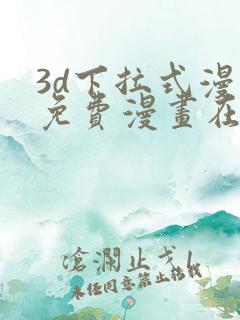 3d下拉式漫
免费漫畫在
滄瀾止戈
未任同意禁止转载